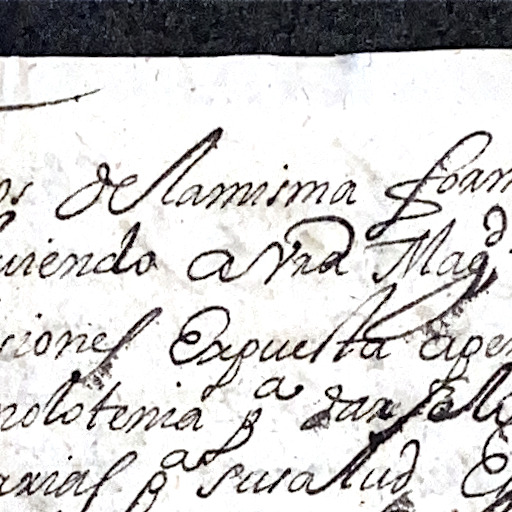 os de la misma form
uiendo a Vra Magd
siones Expuesta aper
nolo tenia pa darselo
arias pa su salud